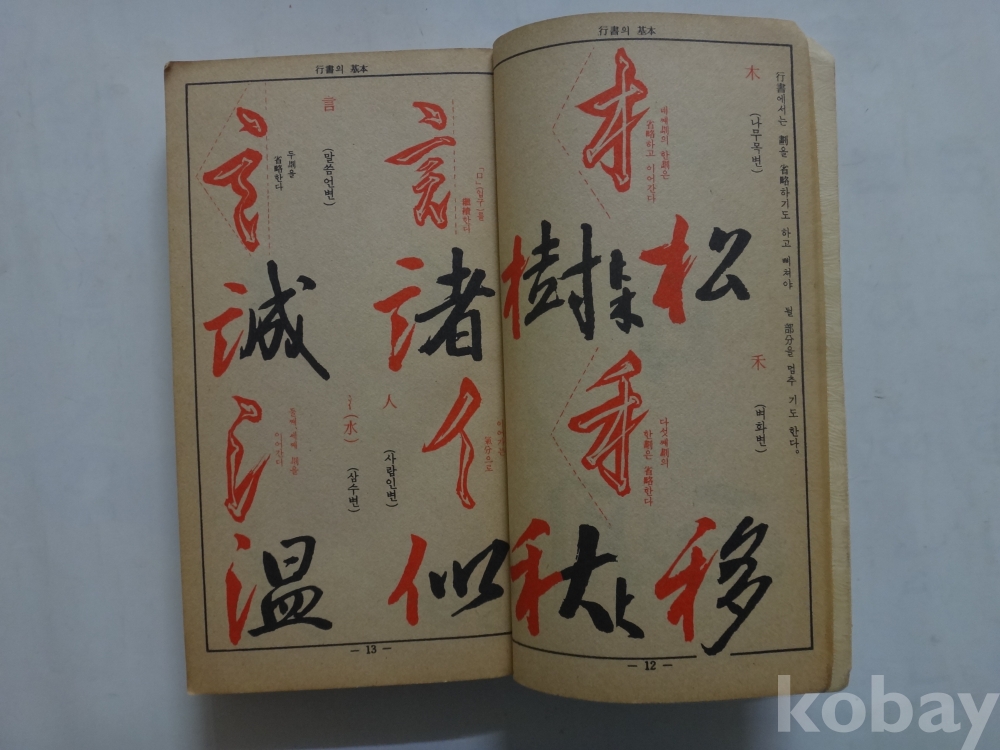 行書의 基本
行書에서는 劃을 省略하기도 하고 삐쳐야 될 部分을 멈추 기도 한다。
木
(나무목변)
네째劃의 한劃은
省略하고 이어간다
松
樹
禾
(벼화변)
다섯째劃의
한劃은 省略한다
移
— 12 —
行書의 基本
言
(말씀언변)
두 劃을
省略한다
諸
誠
人
(사람인변)
氵(水)
(삼수변)
둘째, 세째 劃을
이어간다
似
温
— 13 —
kobay